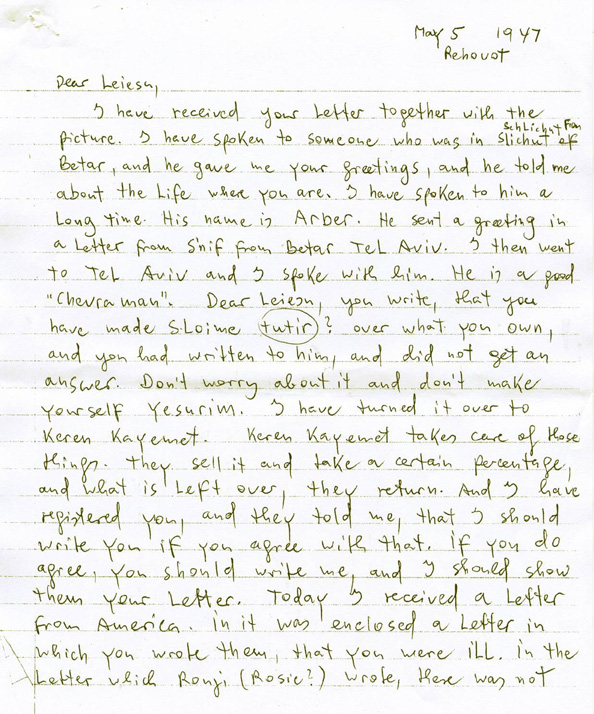 May 5 1947
Rehovot
Dear Leiesn,
I have received your Letter together with the
Schlichut From
picture. I have spoken to someone who was in Slichut of
Betar, and he gave me your greetings, and he told me
about the Life where you are. I have spoken to him a
Long time. His name is Arber. He sent a greeting in
a Letter from S'nif from Betar Tel Aviv. I then went
to Tel Aviv and I spoke with him. He is a good
"Chevraman". Dear Leiesn, you write, that you
have made S.Loime tutir? over what you own,
and you had written to him, and did not get an
answer. Don't worry about it and don't make
yourself Yesurim. I have turned it over to
Keren Kayemet. Keren Kayemet takes care of those
things. They sell it and take a certain percentage,
and what is Left over, they return. And I have
registered you, and they told me, that I should
write you if you agree with that. if you do
agree, you should write me, and I should show
them your Letter. Today I received a Letter
from America. in it was enclosed a Letter in
which you wrote them, that you were iLL. in the
Letter which Ronji (Rosie?) wrote, there was not